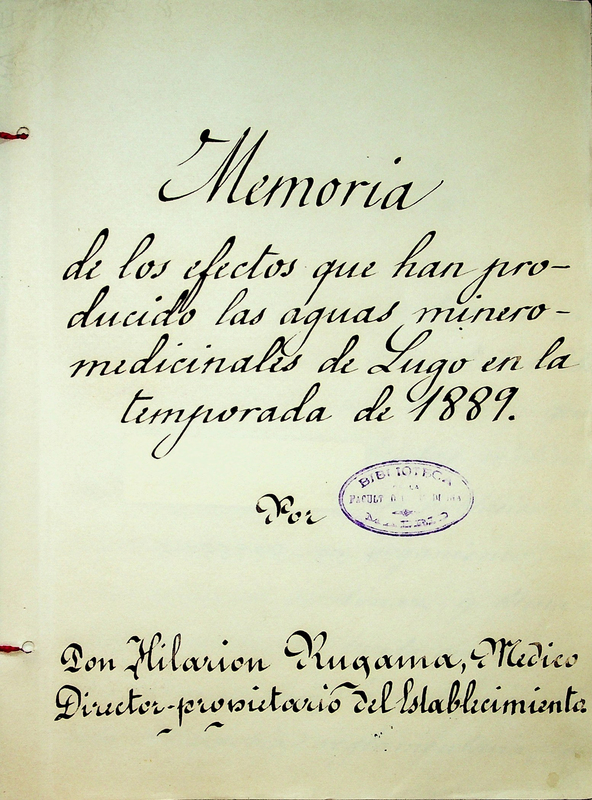 Memoria
de los efectos que han pro-
ducido las aguas minero-
medicinales de Lugo en la
temporada de 1889.
Por
BIBLIOTECA
MADRID
Don Hilarion Rugama, Medico
Director-propietario del Establecimiento